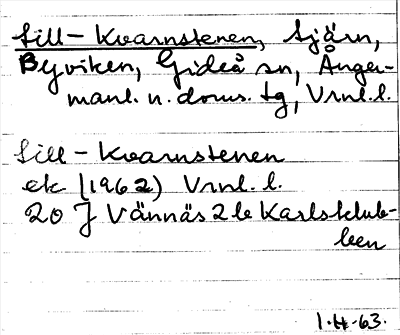 Lill-Kvarnstenen, tjärn,
Byviken, Gideå sn, Ånger-
manl. n. doms. tg, Vrnl. l.
Lill-Kvarnstenen
ek (1962) Vrnl. l.
20 J Vännäs 2 b Karlsklub-
ben
1.4.-63.